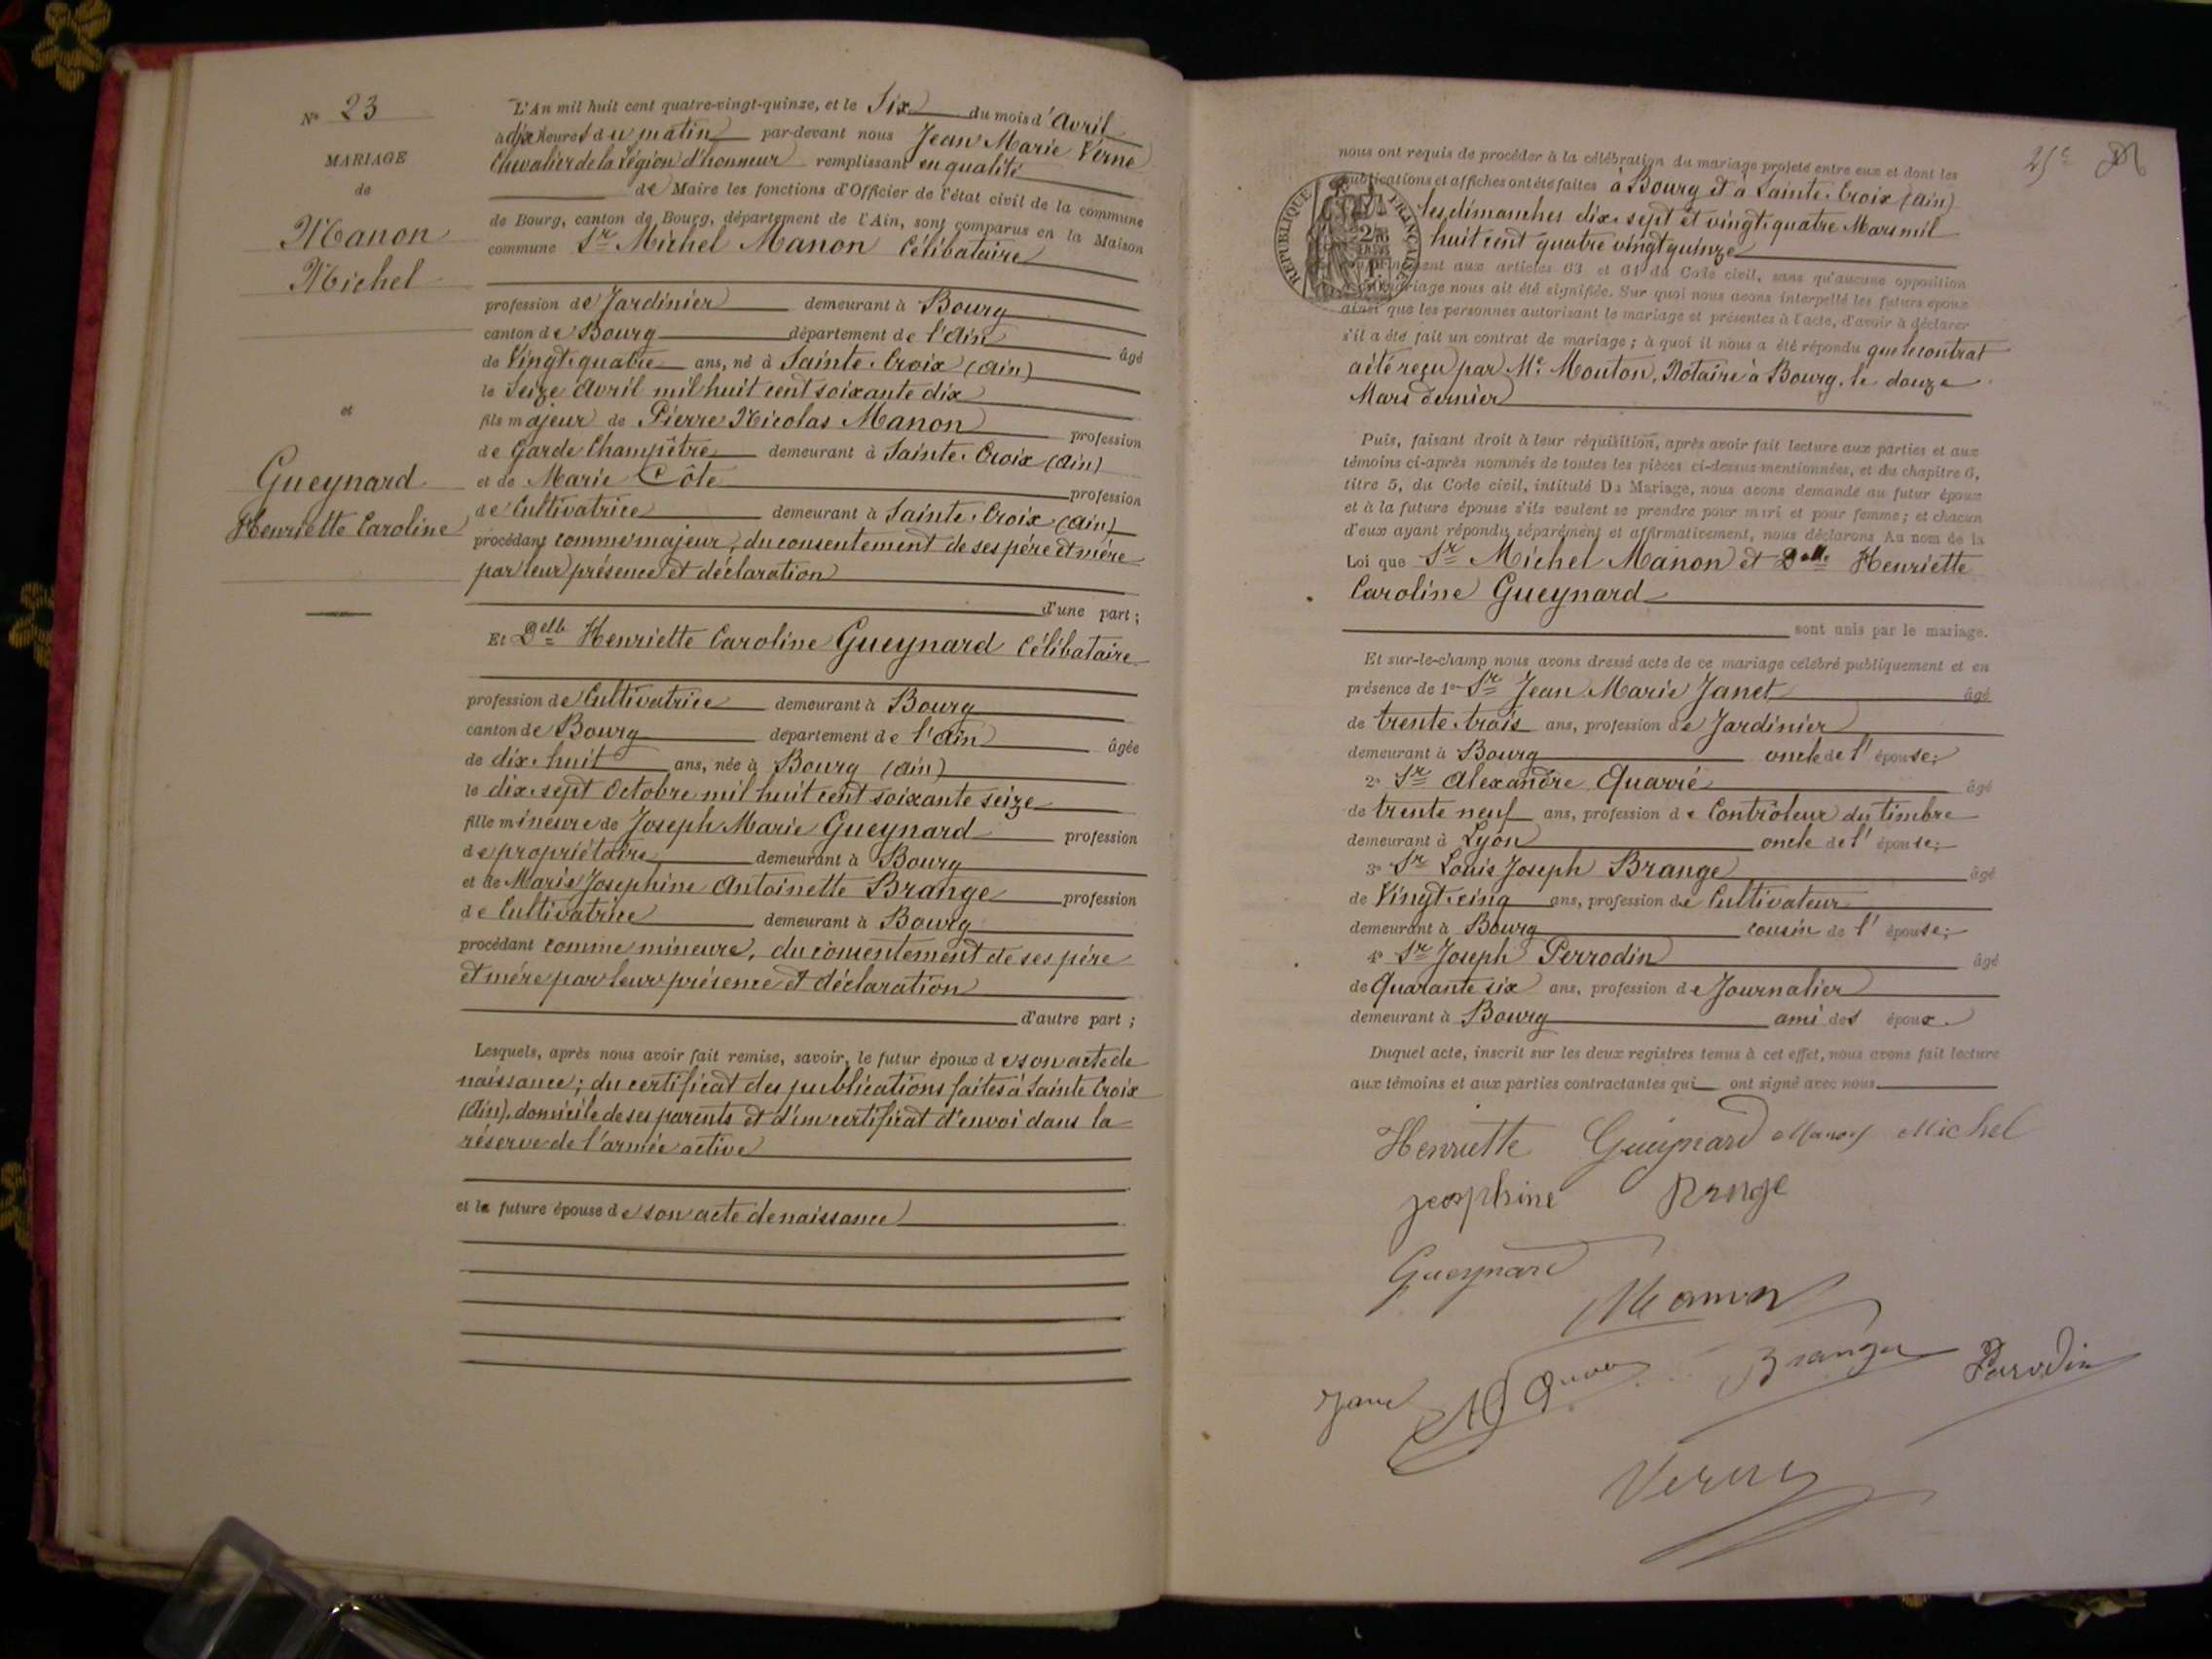 N° 23
MARIAGE
de
Manon
Michel
et
Gueynard
Henriette Caroline
L'An mil huit cent quatre-vingt-quinze, et le Six du mois d'Avril
à dix heures du matin par-devant nous Jean Marie Verne
Chevalier de la Légion d'honneur remplissant en qualité
de Maire les fonctions d'Officier de l'état civil de la commune
de Bourg, canton de Bourg, département de l'Ain, sont comparus en la Maison
commune Sr Michel Manon Célibataire
profession de Jardinier demeurant à Bourg
canton de Bourg département de l'Ain âgé
de Vingt-quatre ans, né à Sainte-Croix (Ain)
le Seize Avril mil huit cent soixante dix
fils majeur de Pierre Nicolas Manon profession
de Garde Champêtre demeurant à Sainte-Croix (Ain)
et de Marie Côte profession
de Cultivatrice demeurant à Sainte-Croix (Ain)
procédant comme majeur, du consentement de ses père et mère
par leur présence et déclaration
d'une part ;
Et Delle Henriette Caroline Gueynard Célibataire
profession de Cultivatrice demeurant à Bourg
canton de Bourg département de l'Ain âgée
de dix-huit ans, née à Bourg (Ain)
le dix-sept Octobre mil huit cent soixante seize
fille mineure de Joseph Marie Gueynard profession
de propriétaire demeurant à Bourg
et de Marie Josephine Antoinette Brange profession
de Cultivatrice demeurant à Bourg
procédant comme mineure, du consentement de ses père
et mère par leur présence et déclaration
d'autre part ;
Lesquels, après nous avoir fait remise, savoir, le futur époux de son acte de
naissance ; du certificat des publications faites à Sainte Croix
(Ain), domicile de ses parents et d'un certificat d'envoi dans la
réserve de l'armée active
et la future épouse de son acte de naissance
25e
nous ont requis de procéder à la célébration du mariage projeté entre eux et dont les
publications et affiches ont été faites à Bourg et à Sainte-Croix (Ain)
les dimanches dix-sept et vingt-quatre Mars mil
huit cent quatre vingt quinze
RÉPUBLIQUE FRANÇAISE
conformément aux articles 63 et 64 du Code civil, sans qu'aucune opposition
au mariage nous ait été signifiée. Sur quoi nous avons interpellé les futurs époux
ainsi que les personnes autorisant le mariage et présentes à l'acte, d'avoir à déclarer
s'il a été fait un contrat de mariage ; à quoi il nous a été répondu que le contrat
a été reçu par Me Mouton, Notaire à Bourg, le douze
Mars dernier
Puis, faisant droit à leur réquisition, après avoir fait lecture aux parties et aux
témoins ci-après nommés de toutes les pièces ci-dessus mentionnées, et du chapitre 6,
titre 5, du Code civil, intitulé Du Mariage, nous avons demandé au futur époux
et à la future épouse s'ils veulent se prendre pour mari et pour femme ; et chacun
d'eux ayant répondu séparément et affirmativement, nous déclarons Au nom de la
Loi que Sr Michel Manon et Delle Henriette
Caroline Gueynard
sont unis par le mariage.
Et sur-le-champ nous avons dressé acte de ce mariage célébré publiquement et en
présence de 1° Sr Jean Marie Janet âgé
de trente-trois ans, profession de Jardinier
demeurant à Bourg oncle de l'épouse ;
2° Sr Alexandre Quarré âgé
de trente neuf ans, profession de Contrôleur du timbre
demeurant à Lyon oncle de l'épouse ;
3° Sr Louis Joseph Brange âgé
de Vingt-cinq ans, profession de Cultivateur
demeurant à Bourg cousin de l'épouse ;
4° Sr Joseph Perrodin âgé
de Quarante six ans, profession de Journalier
demeurant à Bourg ami des époux.
Duquel acte, inscrit sur les deux registres tenus à cet effet, nous avons fait lecture
aux témoins et aux parties contractantes qui ont signé avec nous.
Henriette Gueynard Manon Michel
Josephine Brange
Gueynard
Manon
Brange Perrodin
Verne